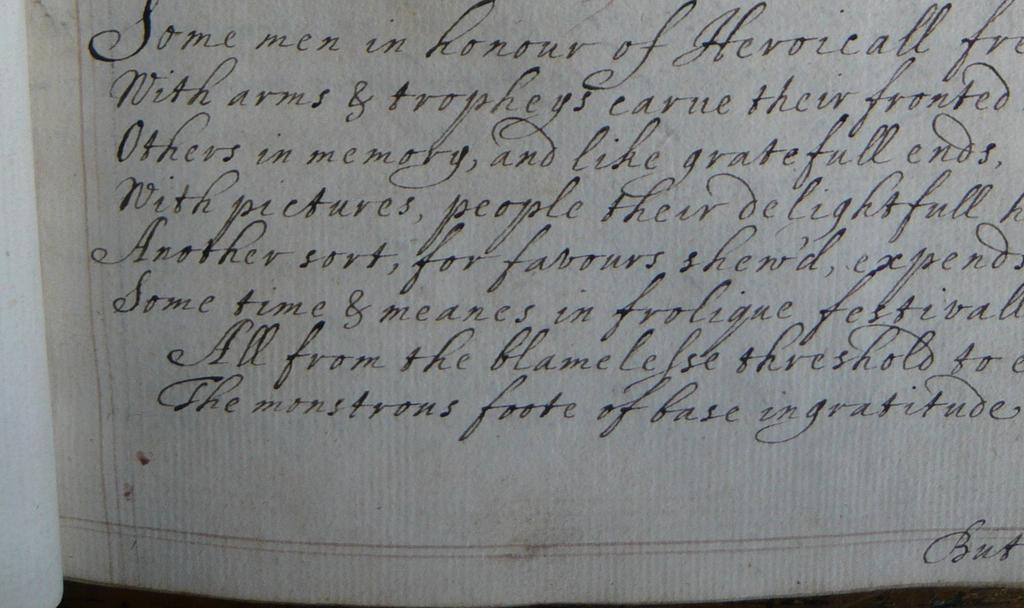 Some men in honour of Heroicall fre
With arms & tropheys carue their fronted
Others in memory, and like gratefull ends,
With pictures, people their delightfull h
Another sort, for favours shew'd, expends
Some time & meanes in frolique festivall
All from the blamelesse threshold to e
The monstrous foote of base ingratitude
But